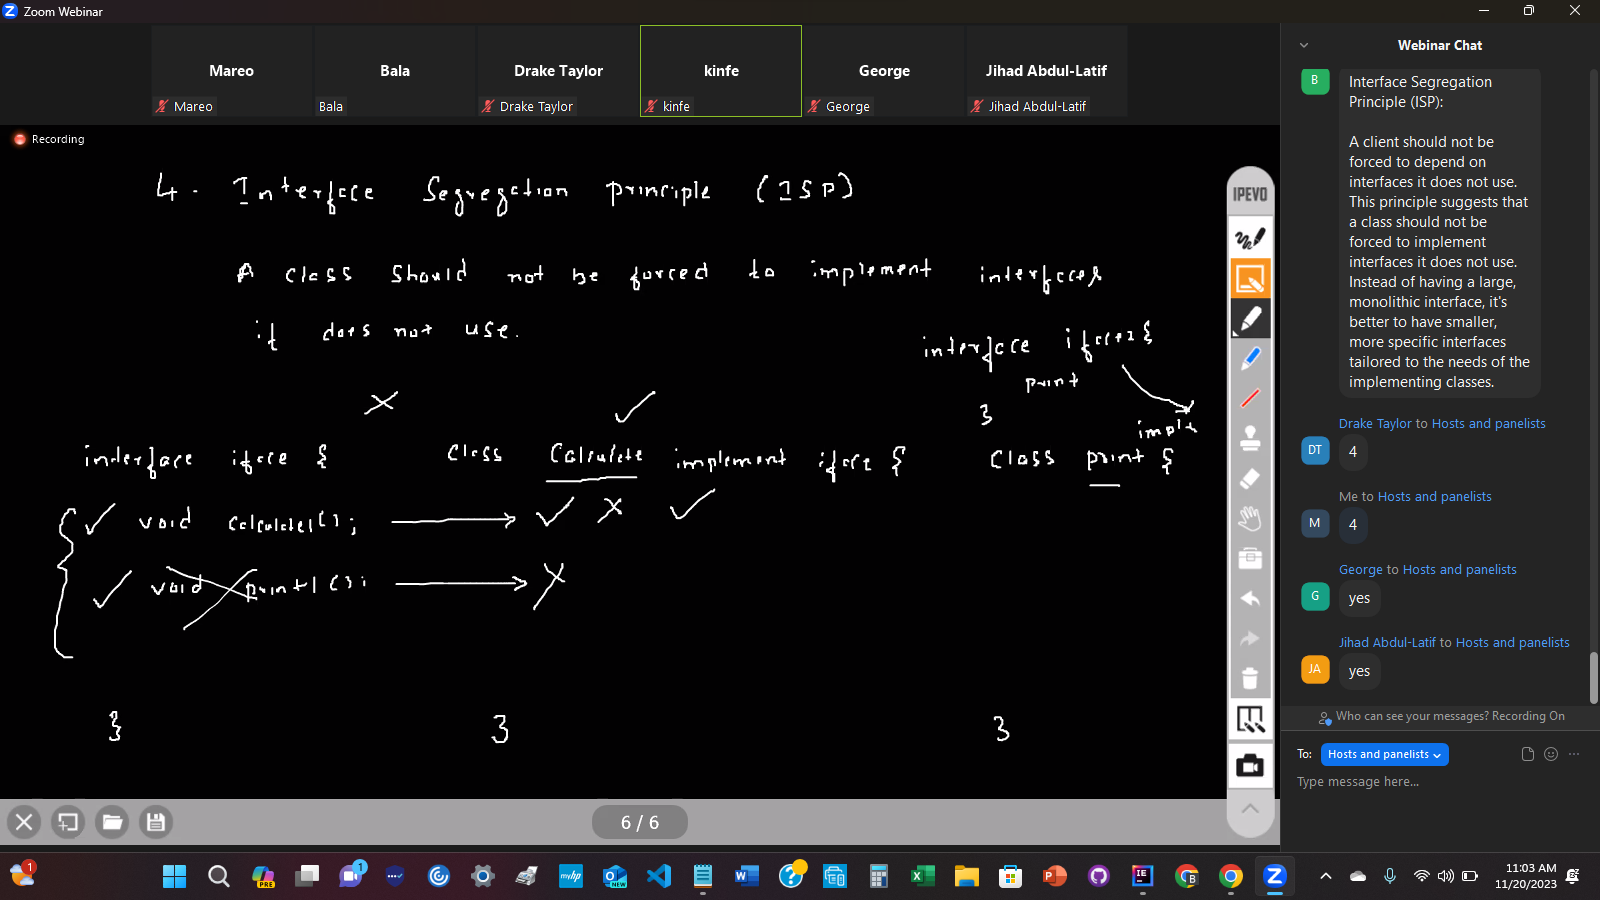 Zoom Webinar
Mareo
Bala
Drake Taylor
kinfe
George
Jihad Abdul-Latif
Mareo
Bala
Drake Taylor
kinfe
George
Jihad Abdul-Latif
Recording
4. Interface Segregation principle (ISP)
A class should not be forced to implement interfaces
it does not use.
interface iface2 {
print
}
imple
interface iface {
class Calculate implement iface {
class print {
void calculate1();
void print1();
}
}
}
IPEVO
6 / 6
Webinar Chat
B
Interface Segregation
Principle (ISP):
A client should not be
forced to depend on
interfaces it does not use.
This principle suggests that
a class should not be
forced to implement
interfaces it does not use.
Instead of having a large,
monolithic interface, it's
better to have smaller,
more specific interfaces
tailored to the needs of the
implementing classes.
Drake Taylor to Hosts and panelists
DT
4
Me to Hosts and panelists
M
4
George to Hosts and panelists
G
yes
Jihad Abdul-Latif to Hosts and panelists
JA
yes
Who can see your messages? Recording On
To: Hosts and panelists
Type message here...
1
PRE
1
myhp
NEW
11:03 AM
11/20/2023